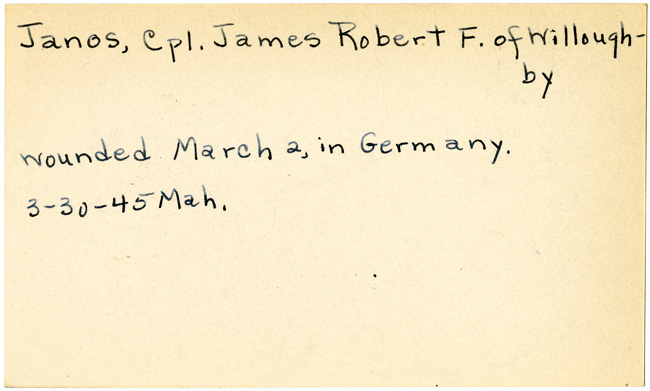 Janos, Cpl. James Robert F. of Willough-
by
wounded March 2, in Germany.
3-30-45 Mah.